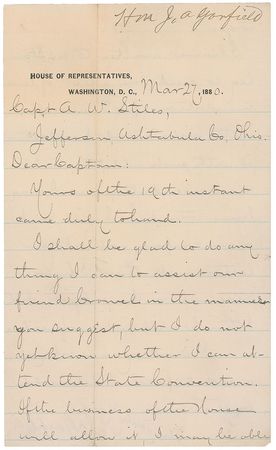 Hon J. A Garfield
HOUSE OF REPRESENTATIVES,
WASHINGTON, D. C., Mar 27, 1880.
Capt A. W. Stiles,
Jefferson Ashtabula Co. Ohio.
Dear Captain:
Yours of the 19th instant
came duly to hand.
I shall be glad to do any
thing I can to assist our
friend Crowel in the manner
you suggest, but I do not
yet know whether I can at-
tend the State Convention.
If the business of the House
will allow it I may be able